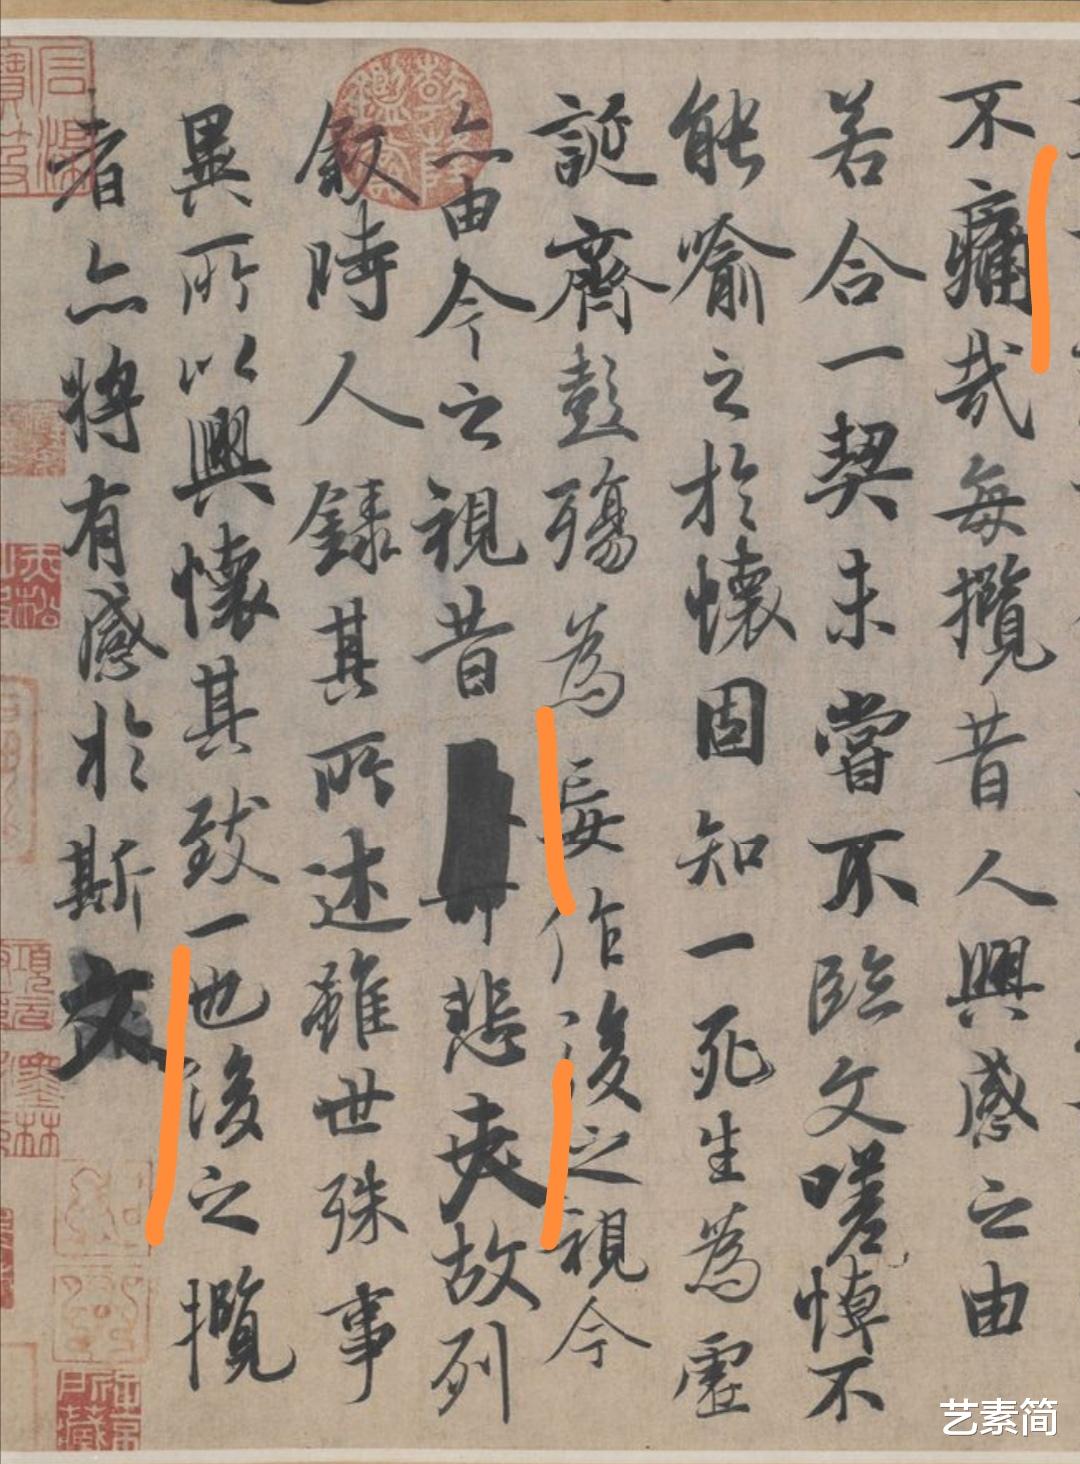 不痛哉每攬昔人興感之由
若合一契未嘗不臨文嗟悼不
能喻之於懷固知一死生為虛
誕齊彭殤為妄作後之視今
亦由今之視昔悲夫故列
敘時人錄其所述雖世殊事
異所以興懷其致一也後之攬
者亦將有感於斯文
艺素简